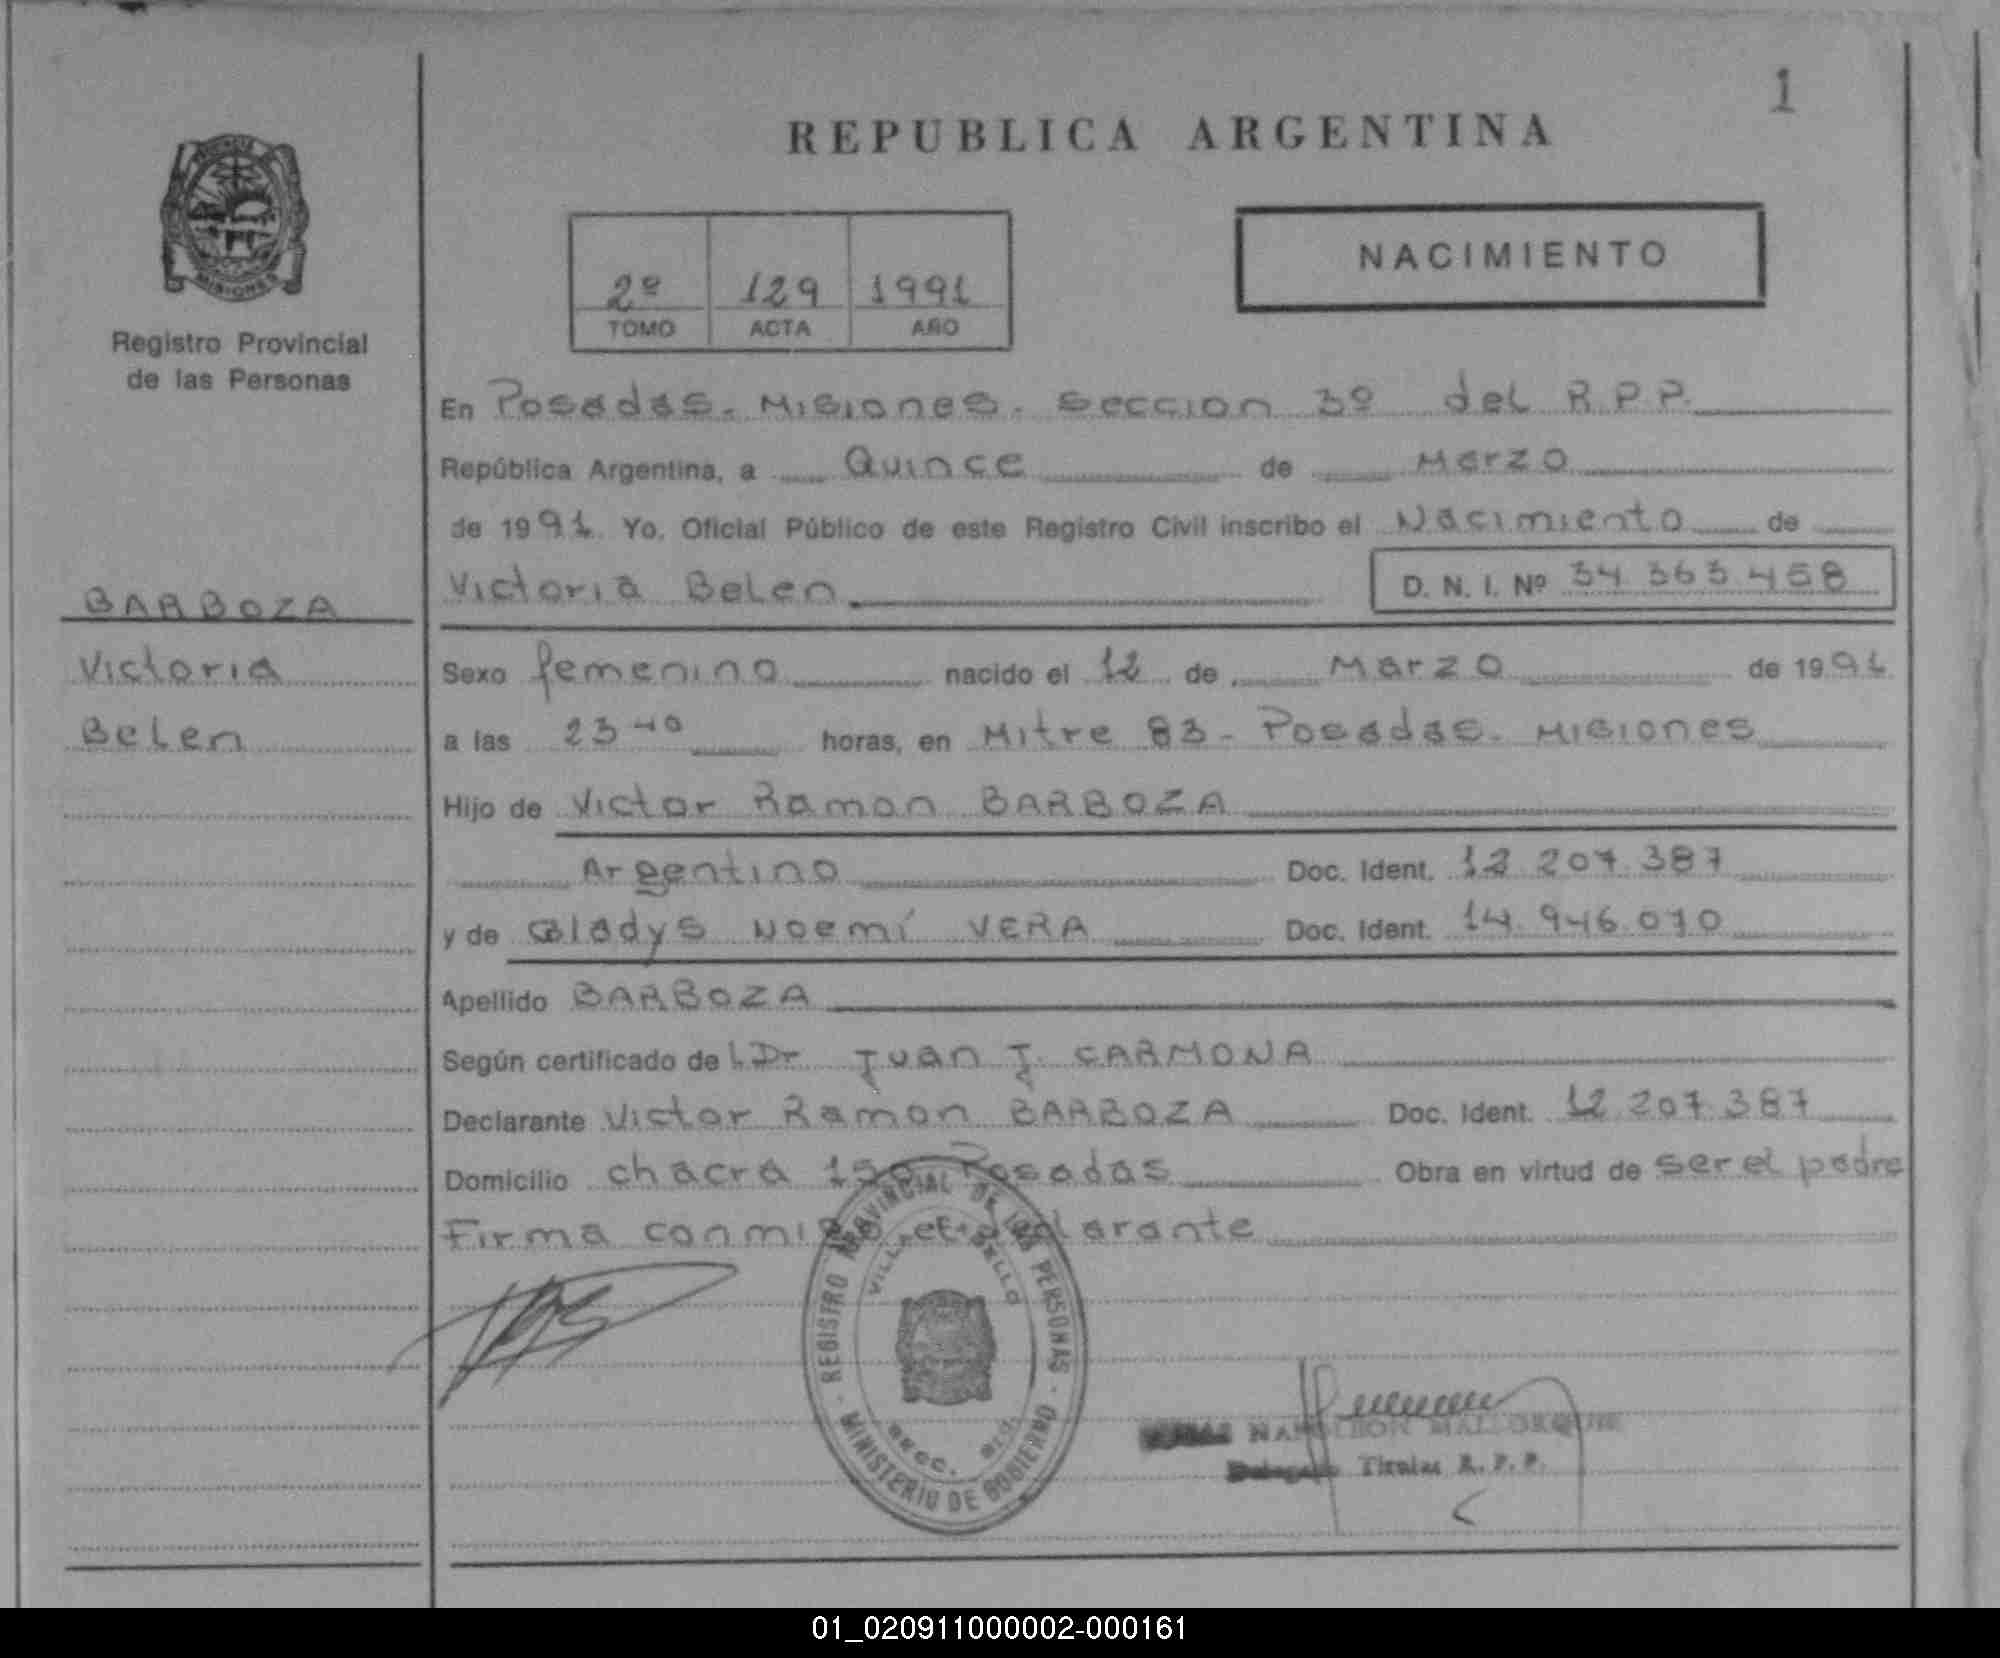 1
REPUBLICA ARGENTINA
NACIMIENTO
2º 129 1991
TOMO ACTA AÑO
MISIONES
Registro Provincial
de las Personas
BARBOZA
Victoria
Belen
En Posadas. Misiones. Seccion 3º del R.P.P.
República Argentina, a Quince de Marzo
de 1991. Yo, Oficial Público de este Registro Civil inscribo el Nacimiento de
Victoria Belen D. N. I. Nº 34.363.458
Sexo femenino nacido el 12 de Marzo de 1991
a las 23 40 horas, en Mitre 83 - Posadas. Misiones
Hijo de Victor Ramon BARBOZA
Argentino Doc. Ident. 12.207.387
y de Gladys Noemí VERA Doc. Ident. 14.946.070
Apellido BARBOZA
Según certificado de l Dr Juan J. CARMONA
Declarante Victor Ramon BARBOZA Doc. Ident. 12.207.387
Domicilio chacra Posadas Obra en virtud de ser el padre
Firma conmigo, el declarante
REGISTRO PROVINCIAL DE LAS PERSONAS
VILLA
SECC.
MINISTERIO DE GOBIERNO
NAPOLEON
Titular R. P. P.
01_020911000002-000161